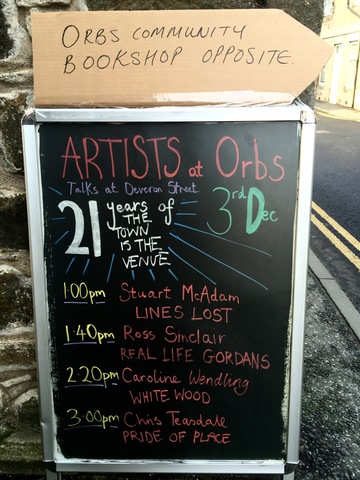 ORBS COMMUNITY
BOOKSHOP OPPOSITE.
ARTISTS at Orbs
Talks at Deveron Street.
21 years of
THE
TOWN
IS THE
VENUE
3rd Dec
1:00pm Stuart McAdam
LINES LOST
1:40pm Ross Sinclair
REAL LIFE GORDANS
2:20pm Caroline Wendling
WHITE WOOD
3:00pm Chris Teasdale
PRIDE OF PLACE